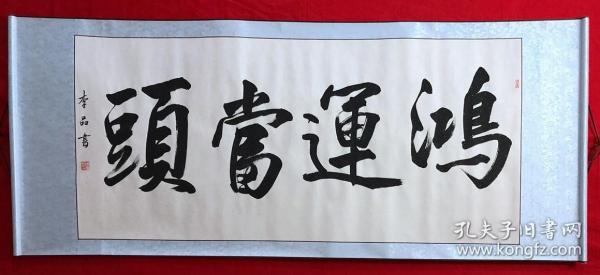 鴻運當頭
李品書
孔夫子旧书网
www.kongfz.com